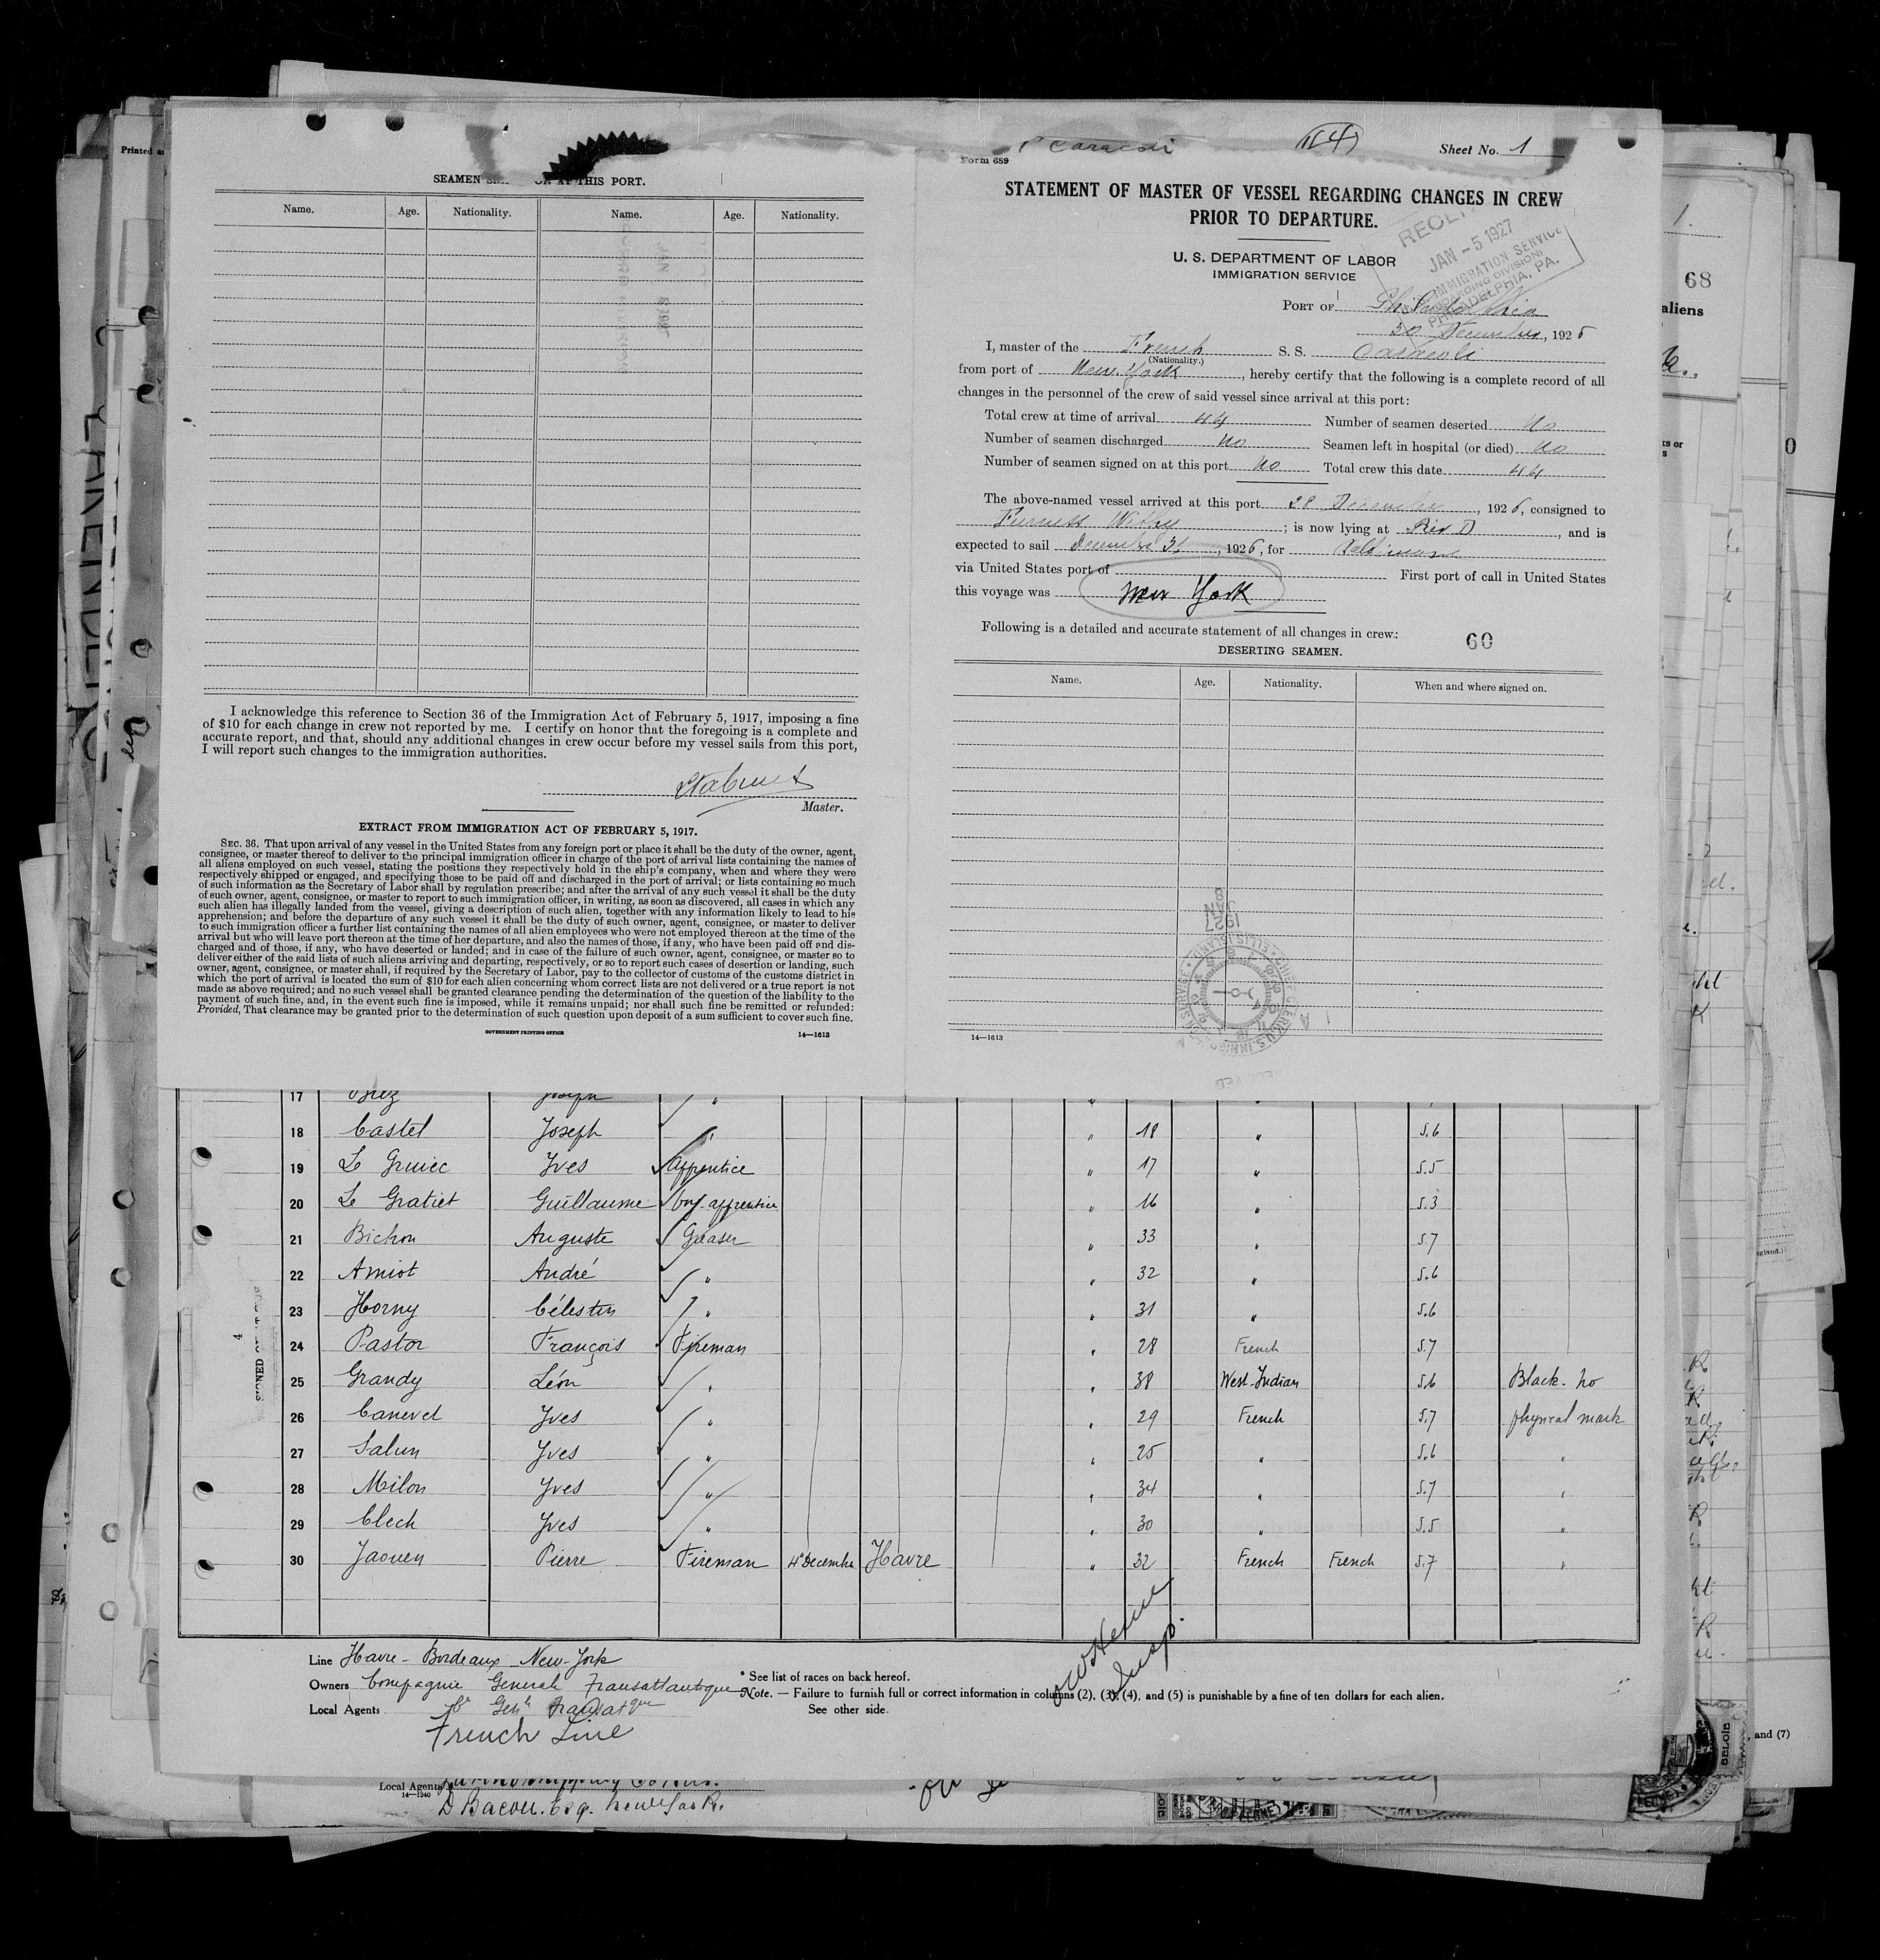 Printed
SEAMEN ON AT THIS PORT.
Name. Age. Nationality. Name. Age. Nationality.
I acknowledge this reference to Section 36 of the Immigration Act of February 5, 1917, imposing a fine
of $10 for each change in crew not reported by me. I certify on honor that the foregoing is a complete and
accurate report, and that, should any additional changes in crew occur before my vessel sails from this port,
I will report such changes to the immigration authorities.
Master.
EXTRACT FROM IMMIGRATION ACT OF FEBRUARY 5, 1917.
SEC. 36. That upon arrival of any vessel in the United States from any foreign port or place it shall be the duty of the owner, agent,
consignee, or master thereof to deliver to the principal immigration officer in charge of the port of arrival lists containing the names of
all aliens employed on such vessel, stating the positions they respectively hold in the ship's company, when and where they were
respectively shipped or engaged, and specifying those to be paid off and discharged in the port of arrival; or lists containing so much
of such information as the Secretary of Labor shall by regulation prescribe; and after the arrival of any such vessel it shall be the duty
of such owner, agent, consignee, or master to report to such immigration officer, in writing, as soon as discovered, all cases in which any
such alien has illegally landed from the vessel, giving a description of such alien, together with any information likely to lead to his
apprehension; and before the departure of any such vessel it shall be the duty of such owner, agent, consignee, or master to deliver
to such immigration officer a further list containing the names of all alien employees who were not employed thereon at the time of the
arrival but who will leave port thereon at the time of her departure, and also the names of those, if any, who have been paid off and dis-
charged and of those, if any, who have deserted or landed; and in case of the failure of such owner, agent, consignee, or master so to
deliver either of the said lists of such aliens arriving and departing, respectively, or so to report such cases of desertion or landing, such
owner, agent, consignee, or master shall, if required by the Secretary of Labor, pay to the collector of customs of the customs district in
which the port of arrival is located the sum of $10 for each alien concerning whom correct lists are not delivered or a true report is not
made as above required; and no such vessel shall be granted clearance pending the determination of the question of the liability to the
payment of such fine, and, in the event such fine is imposed, while it remains unpaid; nor shall such fine be remitted or refunded:
Provided, That clearance may be granted prior to the determination of such question upon deposit of a sum sufficient to cover such fine.
GOVERNMENT PRINTING OFFICE 14—1613
Form 689 Caracoli Sheet No. 1
STATEMENT OF MASTER OF VESSEL REGARDING CHANGES IN CREW
PRIOR TO DEPARTURE.
U. S. DEPARTMENT OF LABOR
IMMIGRATION SERVICE
JAN - 5 1927
IMMIGRATION SERVICE
BOARDING DIVISION
PHILADELPHIA, PA.
PORT OF Philadelphia
30 December, 1926
I, master of the French S. S. Caracoli
(Nationality.)
from port of New-York, hereby certify that the following is a complete record of all
changes in the personnel of the crew of said vessel since arrival at this port:
Total crew at time of arrival 44 Number of seamen deserted No
Number of seamen discharged No Seamen left in hospital (or died) No
Number of seamen signed on at this port No Total crew this date 44
The above-named vessel arrived at this port 28 December, 1926, consigned to
Furness Withy; is now lying at Pier D, and is
expected to sail December 31, 1926, for Baltimore
via United States port of First port of call in United States
this voyage was New York
Following is a detailed and accurate statement of all changes in crew: 60
DESERTING SEAMEN.
Name. Age. Nationality. When and where signed on.
JAN 8 1927
14—1613
17 Briz Joseph "
18 Castel Joseph " " 18 " 5.6
19 Le Gruiec Yves Apprentice " 17 " 5.5
20 Le Gratiet Guillaume apprentice " 16 " 5.3
21 Bichon Auguste Greaser " 33 " 5.7
22 Amiot André " " 32 " 5.6
23 Horny Célestin " " 31 " 5.6
24 Pastor François Fireman " 28 French 5.7
25 Grandy Léon " " 38 West-Indian 5.6 Black - no
26 Canevet Yves " " 29 French 5.7 physical mark
27 Salun Yves " " 25 " 5.6 "
28 Milon Yves " " 34 " 5.7 "
29 Clech Yves " " 30 " 5.5 "
30 Jaouen Pierre Fireman 4 Decembre Havre " 32 French French 5.7 "
Line Havre - Bordeaux - New-York
Owners Compagnie Generale Transatlantique
Local Agents Cie Genle Transatque
French Line
* See list of races on back hereof.
Note. — Failure to furnish full or correct information in columns (2), (3), (4), and (5) is punishable by a fine of ten dollars for each alien.
See other side.
Insp.
Local Agents
14—1240
D Bacon. Esq. New York.
68
aliens
and (7)